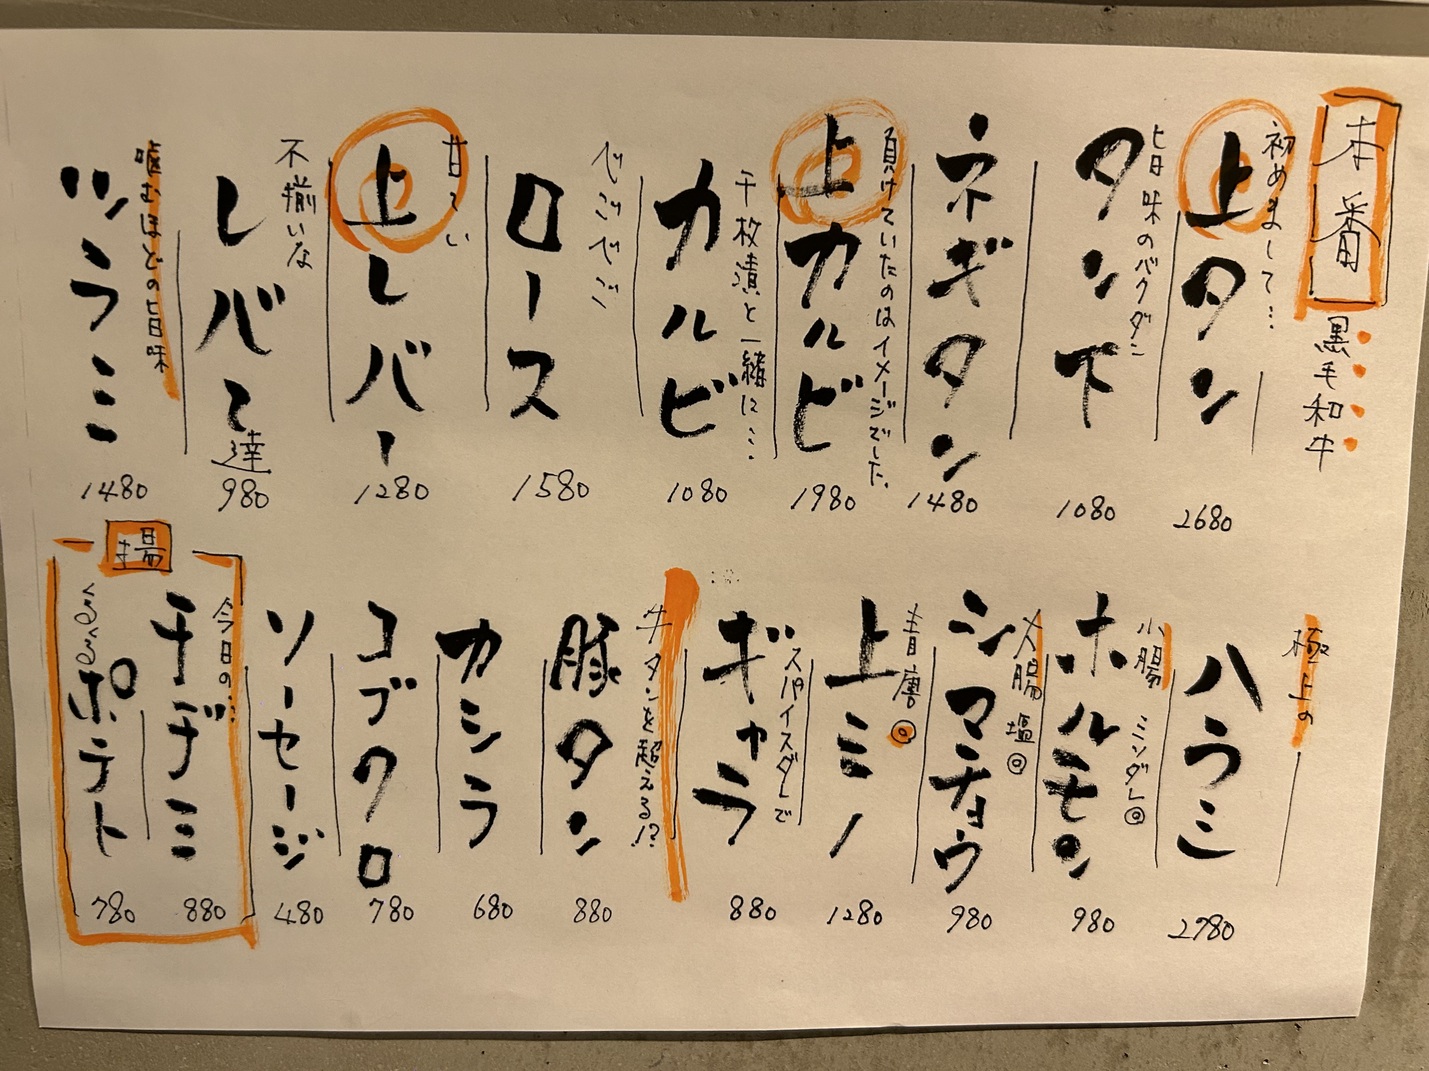 本番
黒毛和牛
初めまして…
上タン
2680
旨味のバクダン
タン下
1080
ネギタン
1480
負けていたのはイメージでした。
上カルビ
1980
千枚漬と一緒に…
カルビ
1080
ロース
1580
甘てい
上レバー
1280
不揃いな
レバて達
980
噛むほどの旨味
ツラミ
1480
極上の
ハラミ
2780
小腸 ミソダレ◎
ホルモン
980
大腸 塩◎
シマチョウ
980
青唐◎
上ミノ
1280
スパイスダレで
ギャラ
880
牛タンを超える!?
豚タン
880
カシラ
680
コブクロ
780
ソーセージ
480
揚
今日の…
チヂミ
880
ポテト
780